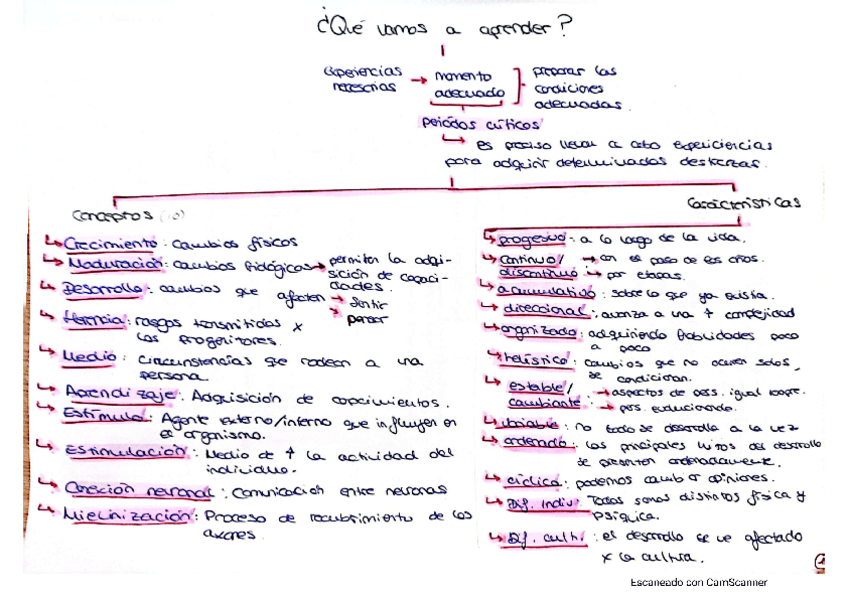 ¿Qué vamos a aprender?
experiencias
necesarias
momento
adecuado
preparar las
condiciones
adecuadas.
periódos críticos
es preciso llevar a cabo
para adquirir determinadas destrezas.
Conceptos (10)
Crecimiento: cambios físicos
Maduración: cambios biológicos → permiten la adqui-
sición de capaci-
dades.
Desarrollo: cambios que afectan → sentir
→ pensar
Herencia: rasgos transmitidos x
los progenitores.
Medio: circunstancias que rodean a una
persona.
Aprendizaje: Adquisición de conocimientos.
Estímulo: Agente externo/interno que influyen en
el organismo.
Estimulación: Medio de ↑ la actividad del
individuo.
Conexión neuronal: Comunicación entre neuronas
Mielinización: Proceso de recubrimiento de los
axones.
Características
progresivo: a lo largo de la vida.
continuo/ → con el paso de los años.
discontinuo → por etapas.
acumulativo: sobre lo que ya existía.
direccional: avanza a una + complejidad
organizado: adquiriendo habilidades poco
a poco
holístico: cambios que no ocurren solos,
se condicionan.
estable/ → aspectos de pers. igual
cambiante: → pers. evolucionando.
variable: no todo se desarrolla a la vez
ordenado: los principales hitos del desarrollo
se presentan ordenadamente.
cíclica: podemos cambiar opiniones.
Dif. indiv: Todos somos distintos física y
psíquica.
Dif. cult.: el desarrollo se ve afectado
x la cultura.
Escaneado con CamScanner